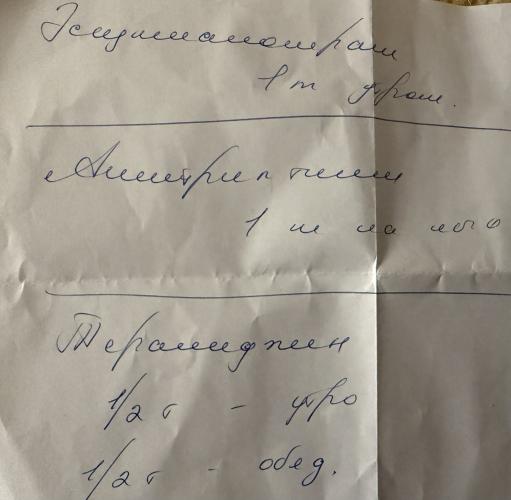 Эсциталопрам
1 т утром.
Амитриптилин
1 т на ночь
Тералиджин
1/2 т - утро
1/2 т - обед.